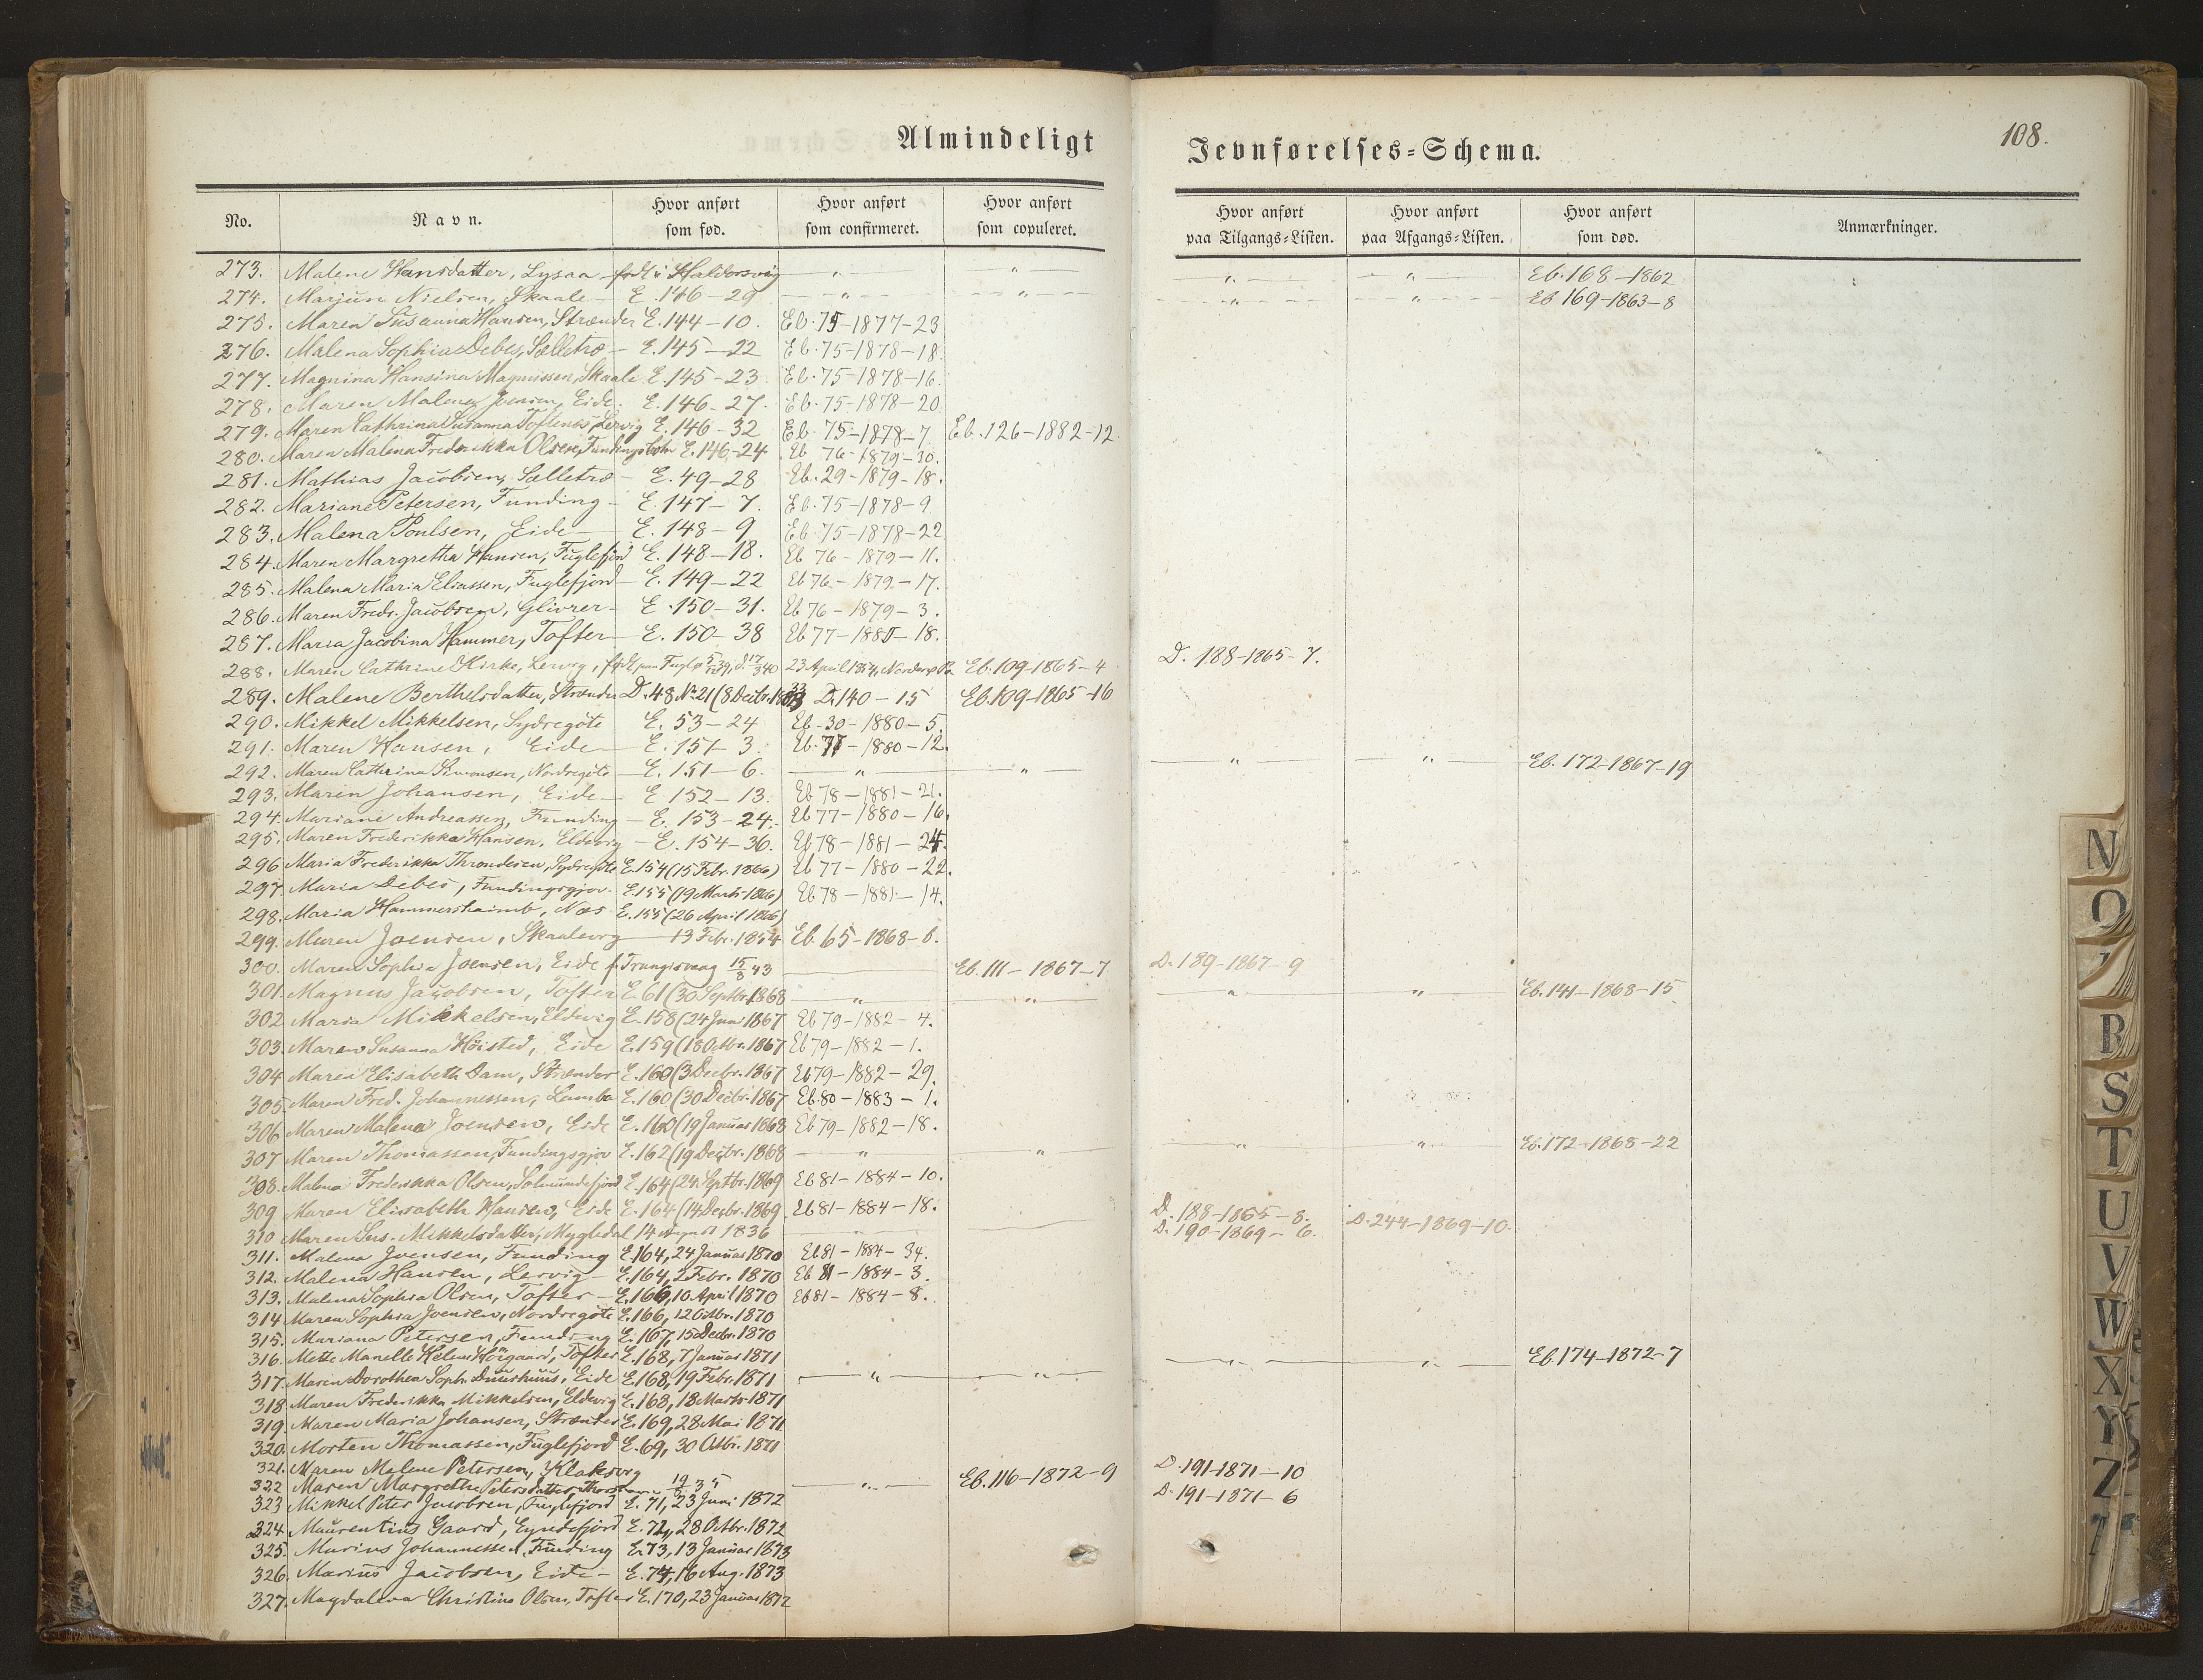 Almindeligt Jevnførelses=Schema.
108.
No. Navn. Hvor anført som fød. Hvor anført som confirmeret. Hvor anført som copuleret. Hvor anført paa Tilgangs=Listen. Hvor anført paa Afgangs=Listen. Hvor anført som død. Anmærkninger.
273. Malene Hansdatter, Lysaa – født i Haldorsvig — " — — " — — " — — " — Eb. 168–1862
274. Marjun Nielsen, Skaale – E. 146–29 — " — — " — — " — — " — Eb 169–1863–8
275. Maren Susanna Hansen, Strænder E. 144–10. Eb. 75–1877–23
276. Malena Sophia Debes, Selletrø – E. 145–22 Eb. 75–1878–18.
277. Magnina Hansina Magnussen, Skaale E. 145–23. Eb. 75–1878–16.
278. Maren Malena Joensen, Eide. E. 146–27. Eb. 75–1878–20
279. Maren Cathrina Susanna Joftenes, Lervig E. 146–32 Eb. 75–1878–7 Eb. 126–1882–12.
280. Maren Malena Frederikka Olsen, Fundingsbotn E. 146–24 Eb 76–1879–30.
281. Mathias Jacobsen, Selletrø – E. 49–28 Eb. 29–1879–18.
282. Mariane Petersen, Funding – E. 147–7. Eb. 75–1878–9
283. Malena Poulsen, Eide – E. 148–9 Eb. 75–1878–22
284. Maren Margretha Hansen, Fuglefjord E. 148–18. Eb 76–1879–11.
285. Malena Maria Eliassen, Fuglefjord – E. 149–22 Eb 76–1879–17.
286. Maren Fredr. Jacobsen, Glivrer – E. 150–31. Eb 76–1879–3.
287. Maria Jacobina Hammer, Tofter – E. 150–38 Eb 77–1880–18.
288. Maren Cathrine Kirke, Lervig, født paa Fuglø 23 April 1854, Norderø Eb. 109–1865–4 D. 188–1865–7.
289. Malene Berthelsdatter, Strænder D. 48 No 21 (8 Decbr. 1833 D. 140–15 Eb. 109–1865–16
290. Mikkel Mikkelsen, Sydregöte E. 53–24 Eb. 30–1880–5.
291. Maren Hansen, Eide – E. 151–3. Eb. 77–1880–12.
292. Maren Cathrina Simonsen, Nordregöte – E. 151–6. — " — — " — — " — — " — Eb. 172–1867–19
293. Maren Johansen, Eide – E 152–13. Eb 78–1881–21.
294. Mariane Andreassen, Funding – E. 153–24. Eb 77–1880–16.
295. Maren Frederikka Hansen, Eldevig – E. 154–36. Eb 78–1881–24.
296 Maria Frederikka Throndesen, Sydregöte E. 154 (15 Febr. 1866) Eb 77–1880–22.
297. Maria Debes, Fundingsgjov. E. 155 (19 Marts 1866) Eb 78–1881–14.
298. Maria Hammershaimb, Næs E. 155 (26 April 1866)
299. Maren Joensen, Skaalevig — 13 Febr. 1854 Eb. 65–1868–6.
300. Maren Sophia Joensen, Eide f. Trangisvaag 15/8 43 — Eb. 111–1867–7 D. 189–1867–9
301. Magnus Jacobsen, Tofter E. 61 (30 Septbr. 1868 — " — — " — — " — — " — Eb. 141–1868–15
302 Maria Mikkelsen, Eldevig E. 158 (24 Juni 1867 Eb 79–1882–4.
303. Maren Susanna Höisted, Eide E. 159 (18 Octbr. 1867 Eb 79–1882–1.
304 Maren Elisabeth Dam, Strænder E. 160 (3 Decbr. 1867 Eb 79–1882–29.
305. Maren Fred. Johannessen, Lamba E. 160 (30 Decbr. 1867 Eb. 80–1883–1.
306 Maren Malena Joensen, Eide E. 160 (19 Januar 1868 Eb 79–1882–18.
307 Maren Thomassen, Fundingsgjov E. 162 (19 Decbr. 1868 — " — — " — — " — — " — Eb. 172–1868–22
308. Malena Frederikka Olsen, Solmundefjord E. 164 (24 Septbr. 1869 Eb 81–1884–10.
309 Maren Elisabeth Hansen, Eide E. 164 (14 Decbr. 1869 Eb 81–1884–18. D. 188–1865–8.
310 Maren Sus. Mikkelsdatter, Mygledal 14 August 1836 — — D. 190–1869–6. D. 244–1869–10
311. Malena Joensen, Funding E. 164, 24 Januar 1870 Eb 81–1884–34.
312. Malena Hansen, Lervig – E. 164, 2 Febr. 1870 Eb 81–1884–3.
313. Malena Sophia Olsen, Tofter – E. 166, 10 April 1870 Eb 81–1884–8.
314 Maren Sophia Joensen, Nordregöte E. 166, 12 Octbr. 1870
315. Mariana Petersen, Funding E. 167, 15 Decbr. 1870
316. Mette Manelle Helene Höigaard, Tofter E. 168, 7 Januar 1871
317. Maren Dorothea Soph. Duurhuus, Eide E. 168, 19 Febr. 1871 — " — — " — — " — — " — Eb. 174–1872–7
318 Maren Frederikka Mikkelsen, Eldevig E. 168, 18 Marts 1871
319. Maren Maria Johansen, Strænder E. 169, 28 Mai 1871
320. Morten Thomassen, Fuglefjord E. 69, 30 Octbr. 1871
321. Maren Malene Petersen, Klaksvig D. 191–1871–10
322 Maren Margrethe Petersdatter, Thorshavn — " — Eb. 116–1872–9 D. 191–1871–6
323 Mikkel Peter Jacobsen, Fuglefjord E. 71, 23 Juni 1872
324 Maurentius Gaard, Eyndefjord E. 72, 28 Octbr. 1872
325. Marius Johannessen, Funding E. 73, 13 Januar 1873
326. Marius Jacobsen, Eide – E. 74, 16 Aug. 1873
327. Magdalena Christina Olsen, Tofter E. 170, 23 Januar 1872
N
O
R
S
T
U
V
W
X
Y
Z